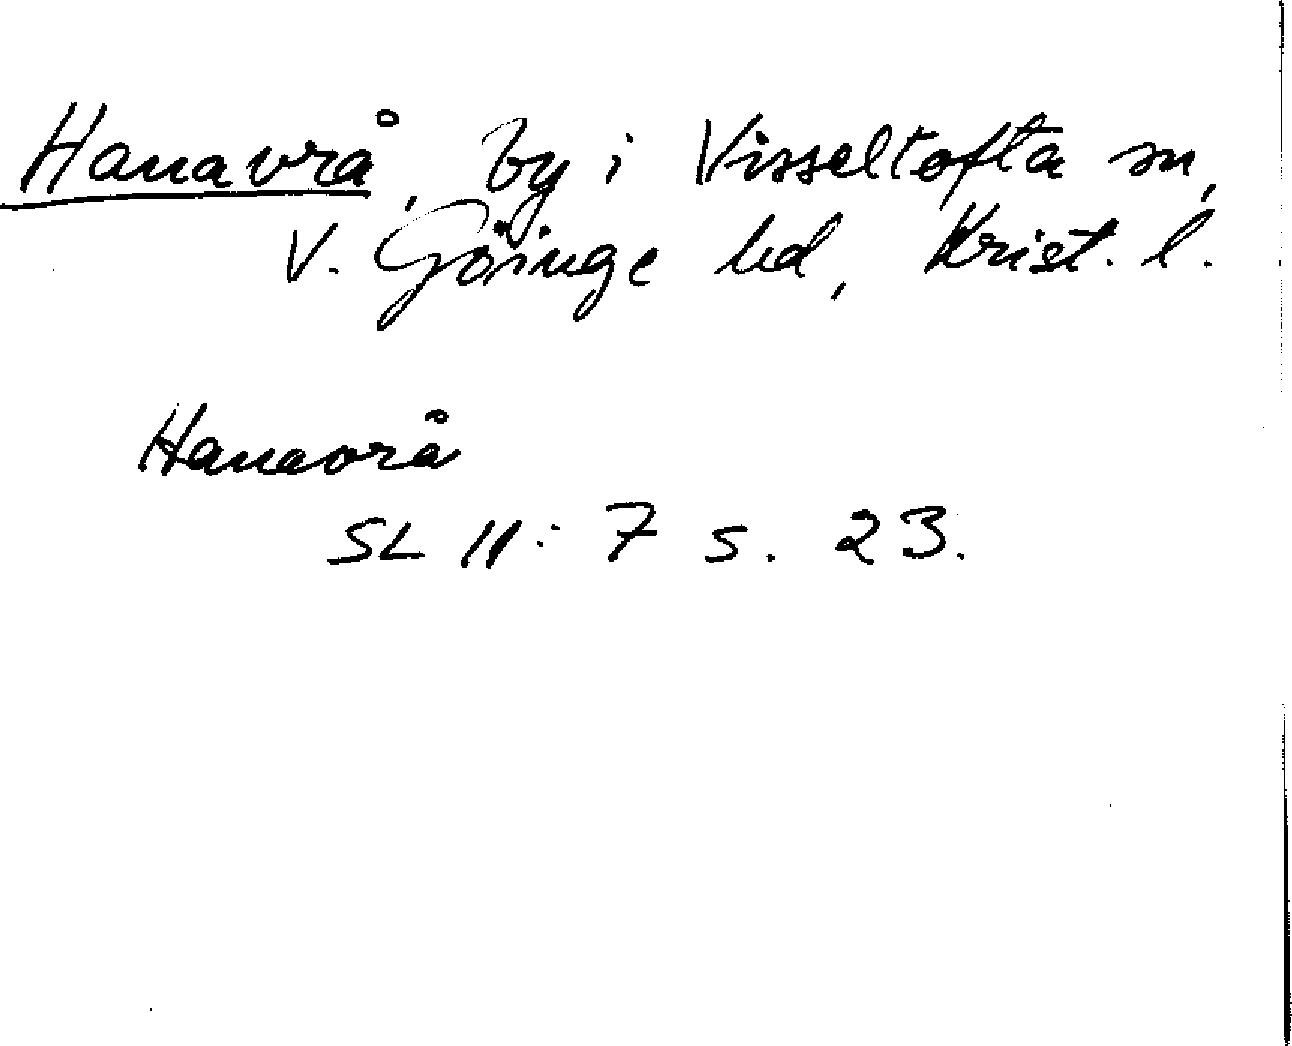 Hanavrå, by i Visseltofta sn,
V. Göinge hd, Krist. l.
Hanavrå
SL 11: 7 s. 23.